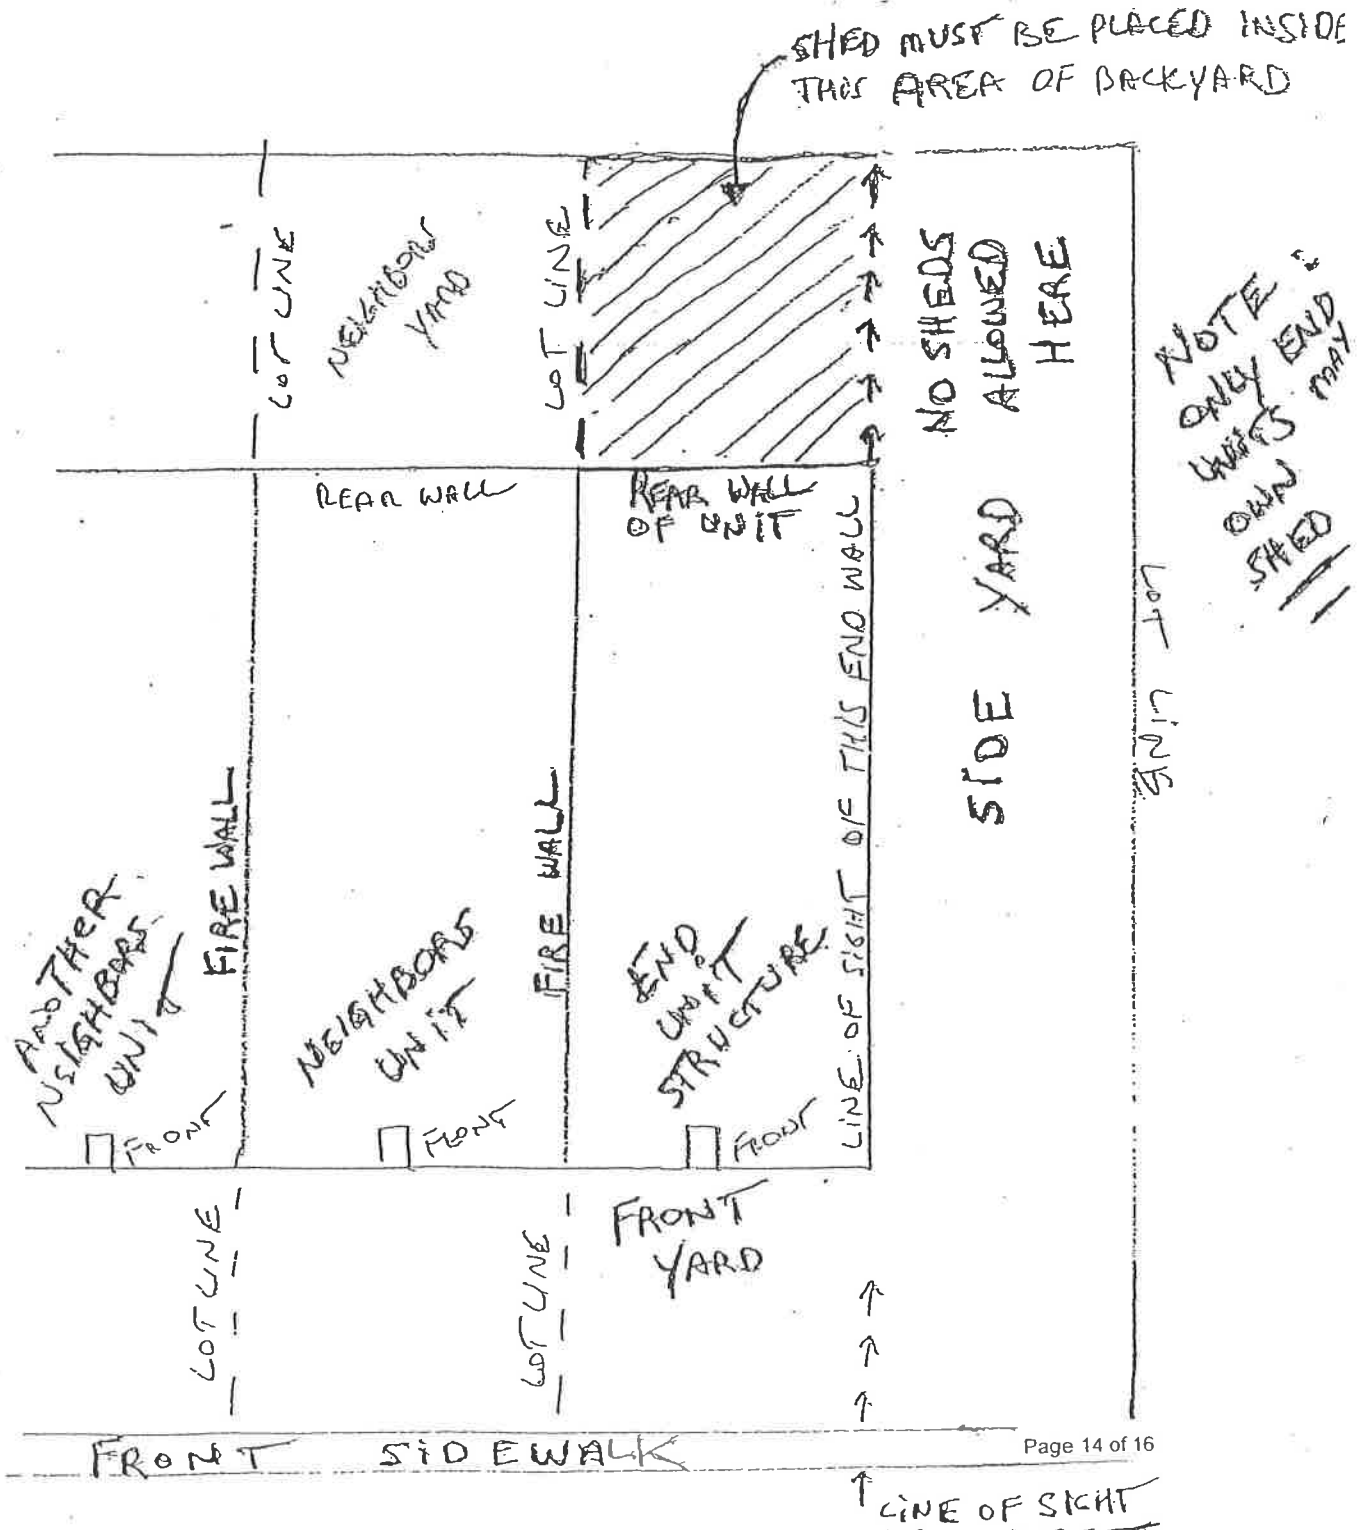 SHED MUST BE PLACED INSIDE
THIS AREA OF BACKYARD
LOT LINE
NEIGHBOR
YARD
LOT LINE
NO SHEDS
ALLOWED
HERE
NOTE:
ONLY END
UNITS MAY
OWN
SHED
REAR WALL
REAR WALL
OF UNIT
LINE OF SIGHT OF THIS END WALL
SIDE YARD
LOT LINE
FIRE WALL
FIRE WALL
ANOTHER
NEIGHBORS
UNIT
NEIGHBORS
UNIT
END
UNIT
STRUCTURE
FRONT
FRONT
FRONT
LOT LINE
LOT LINE
FRONT
YARD
FRONT SIDEWALK
Page 14 of 16
LINE OF SIGHT